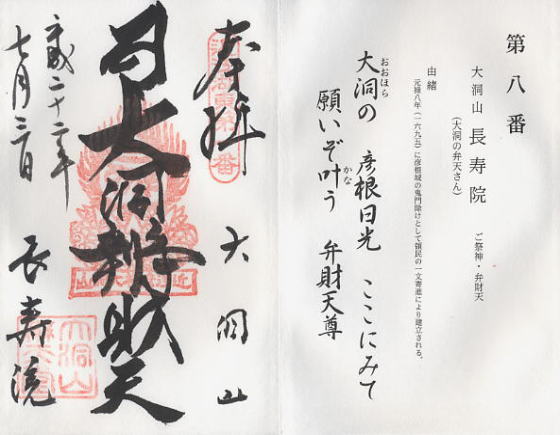 第八番
大洞山 長寿院 ご祭神・弁財天
(大洞の弁天さん)
由緒
元禄八年(一六九五)に彦根城の鬼門除けとして領民の一文寄進により建立される。
おおほら
大洞の 彦根日光 ここにみて
かな
願いぞ叶う 弁財天尊
奉拝
大洞山
大洞辨財天
平成二十二年
七月三日
長寿院